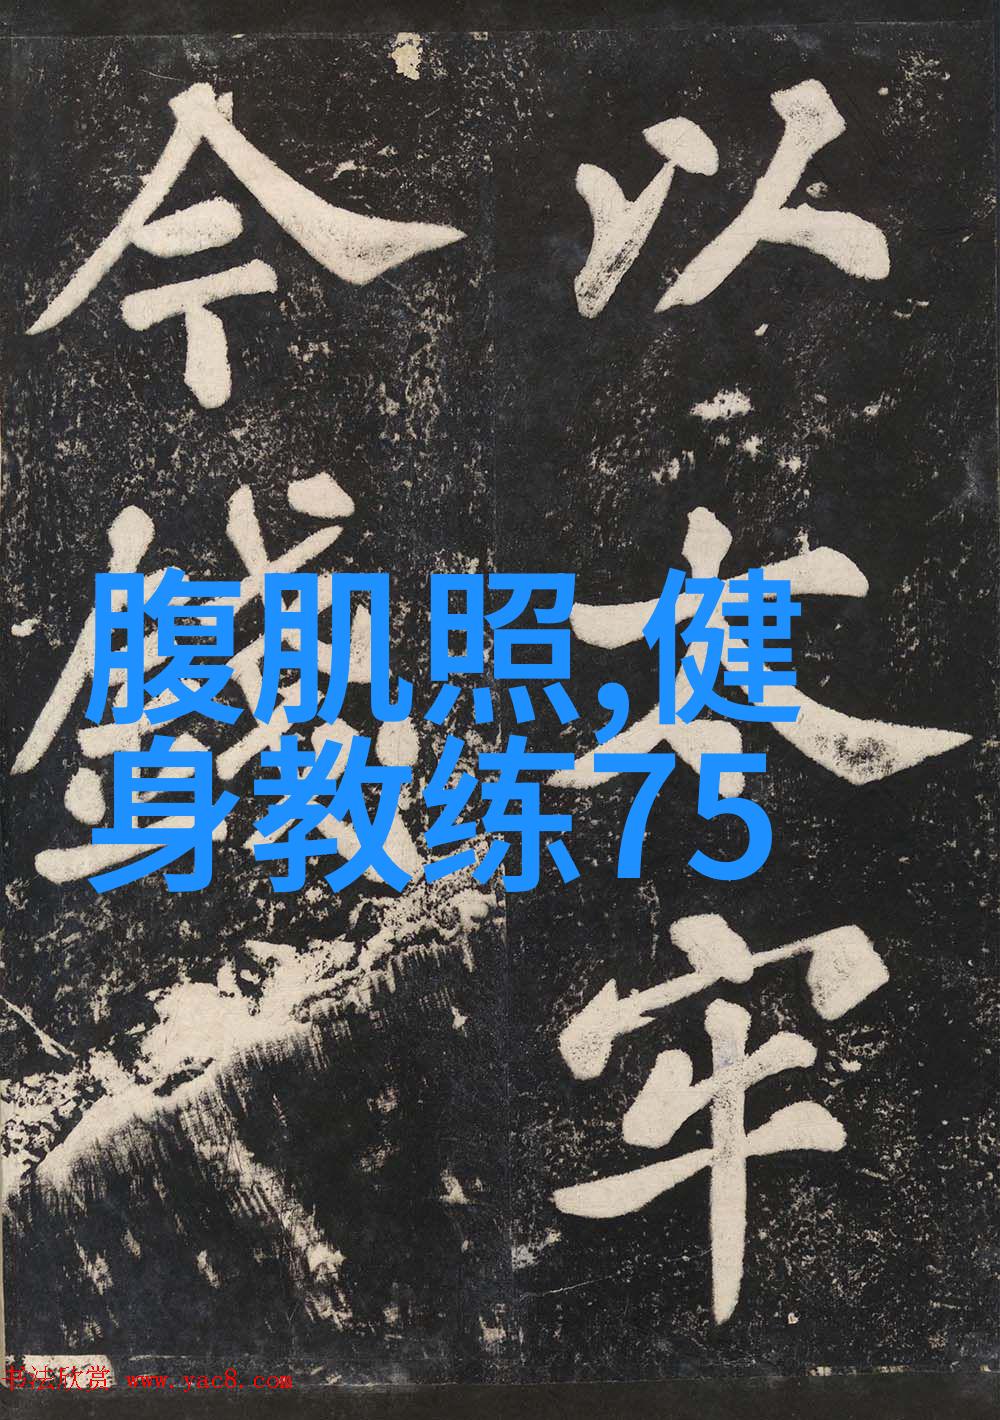 以太牢
今
腹肌照,健
身教练75
书法欣赏 www.yac8.com